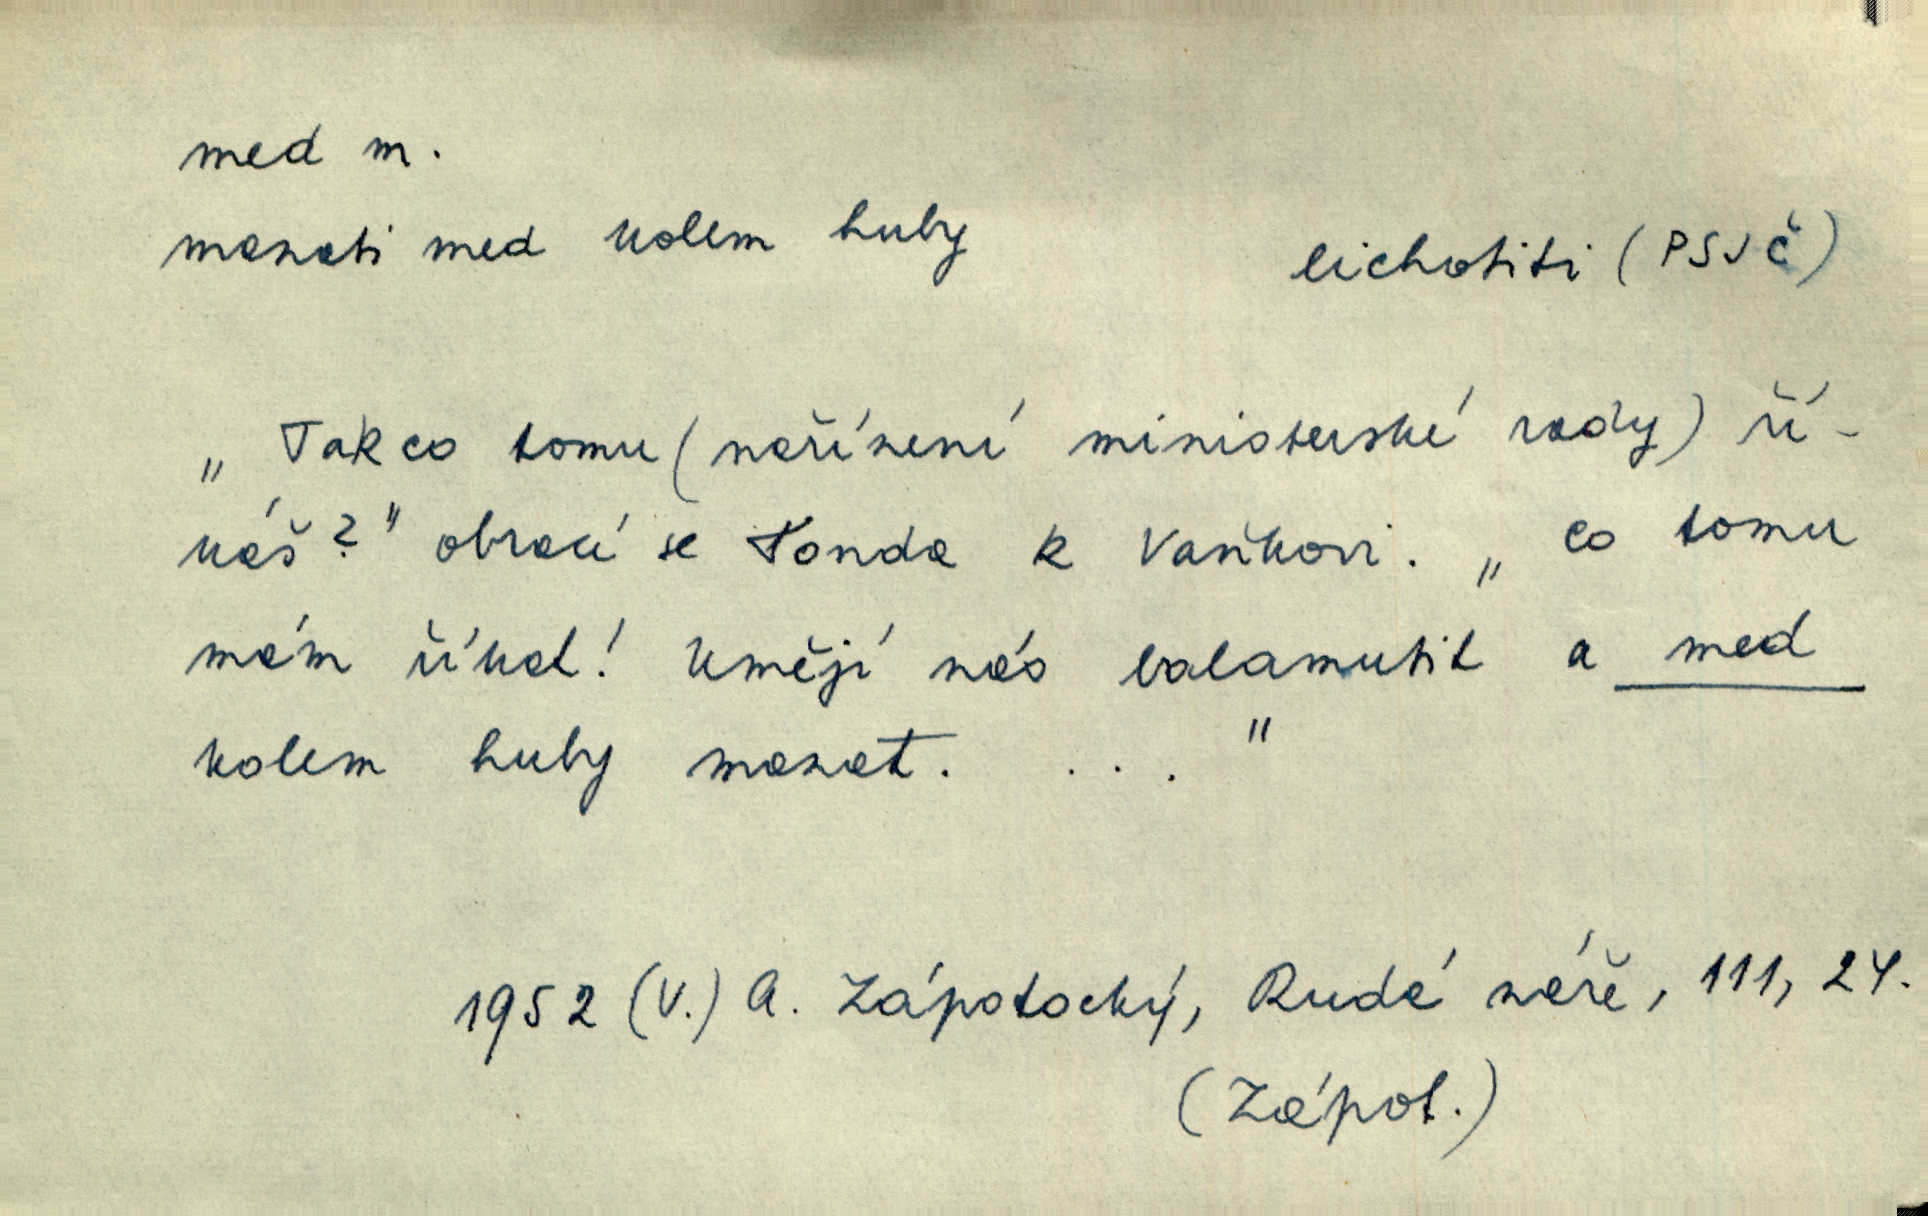 med m.
mazati med kolem huby
lichotiti (PSJČ)
„Tak co tomu (nařízení ministerské rady) ří-
káš?" obrací se Tonda k Vaňkovi. „Co tomu
mám říkat! Umějí nás balamutit a med
kolem huby mazat. . . ."
1952 (V.) A. Zápotocký, Rudé záře, 111, 24.
(Zápot.)